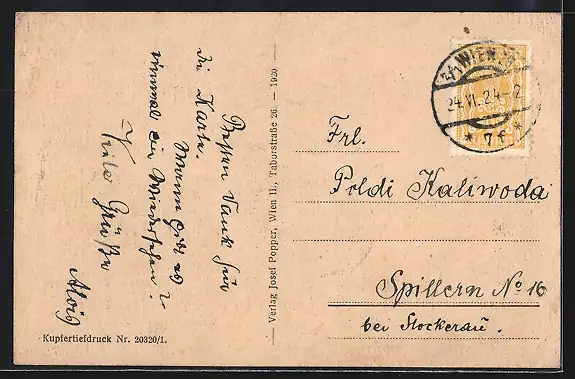 Besten Dank für
die Karte.
Wann gibt es
einmal ein Wiedersehen?
Viele Grüße
Alois
Kupfertiefdruck Nr. 20320/1.
— Verlag Josef Popper, Wien II., Taborstraße 26. — 1920 —
WIEN
24.VI.24-2
* 7f *
Frl.
Poldi Kaliwoda
Spillern No 16
bei Stockerau.